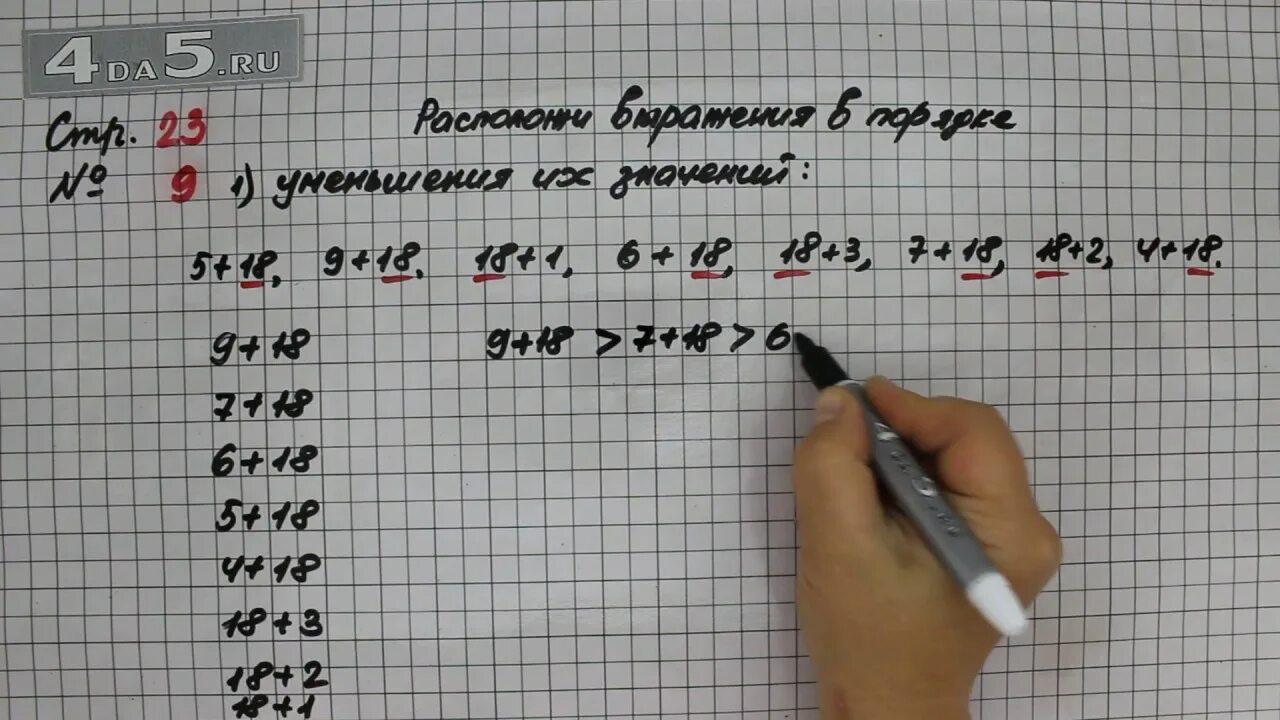 4DA5.RU
Стр. 23 Расположи выражения в порядке
№ 9 1) уменьшения их значений:
5+18, 9+18. 18+1, 6+18, 18+3, 7+18, 18+2, 4+18.
9+18 9+18 > 7+18 > 6
7+18
6+18
5+18
4+18
18+3
18+2
18+1